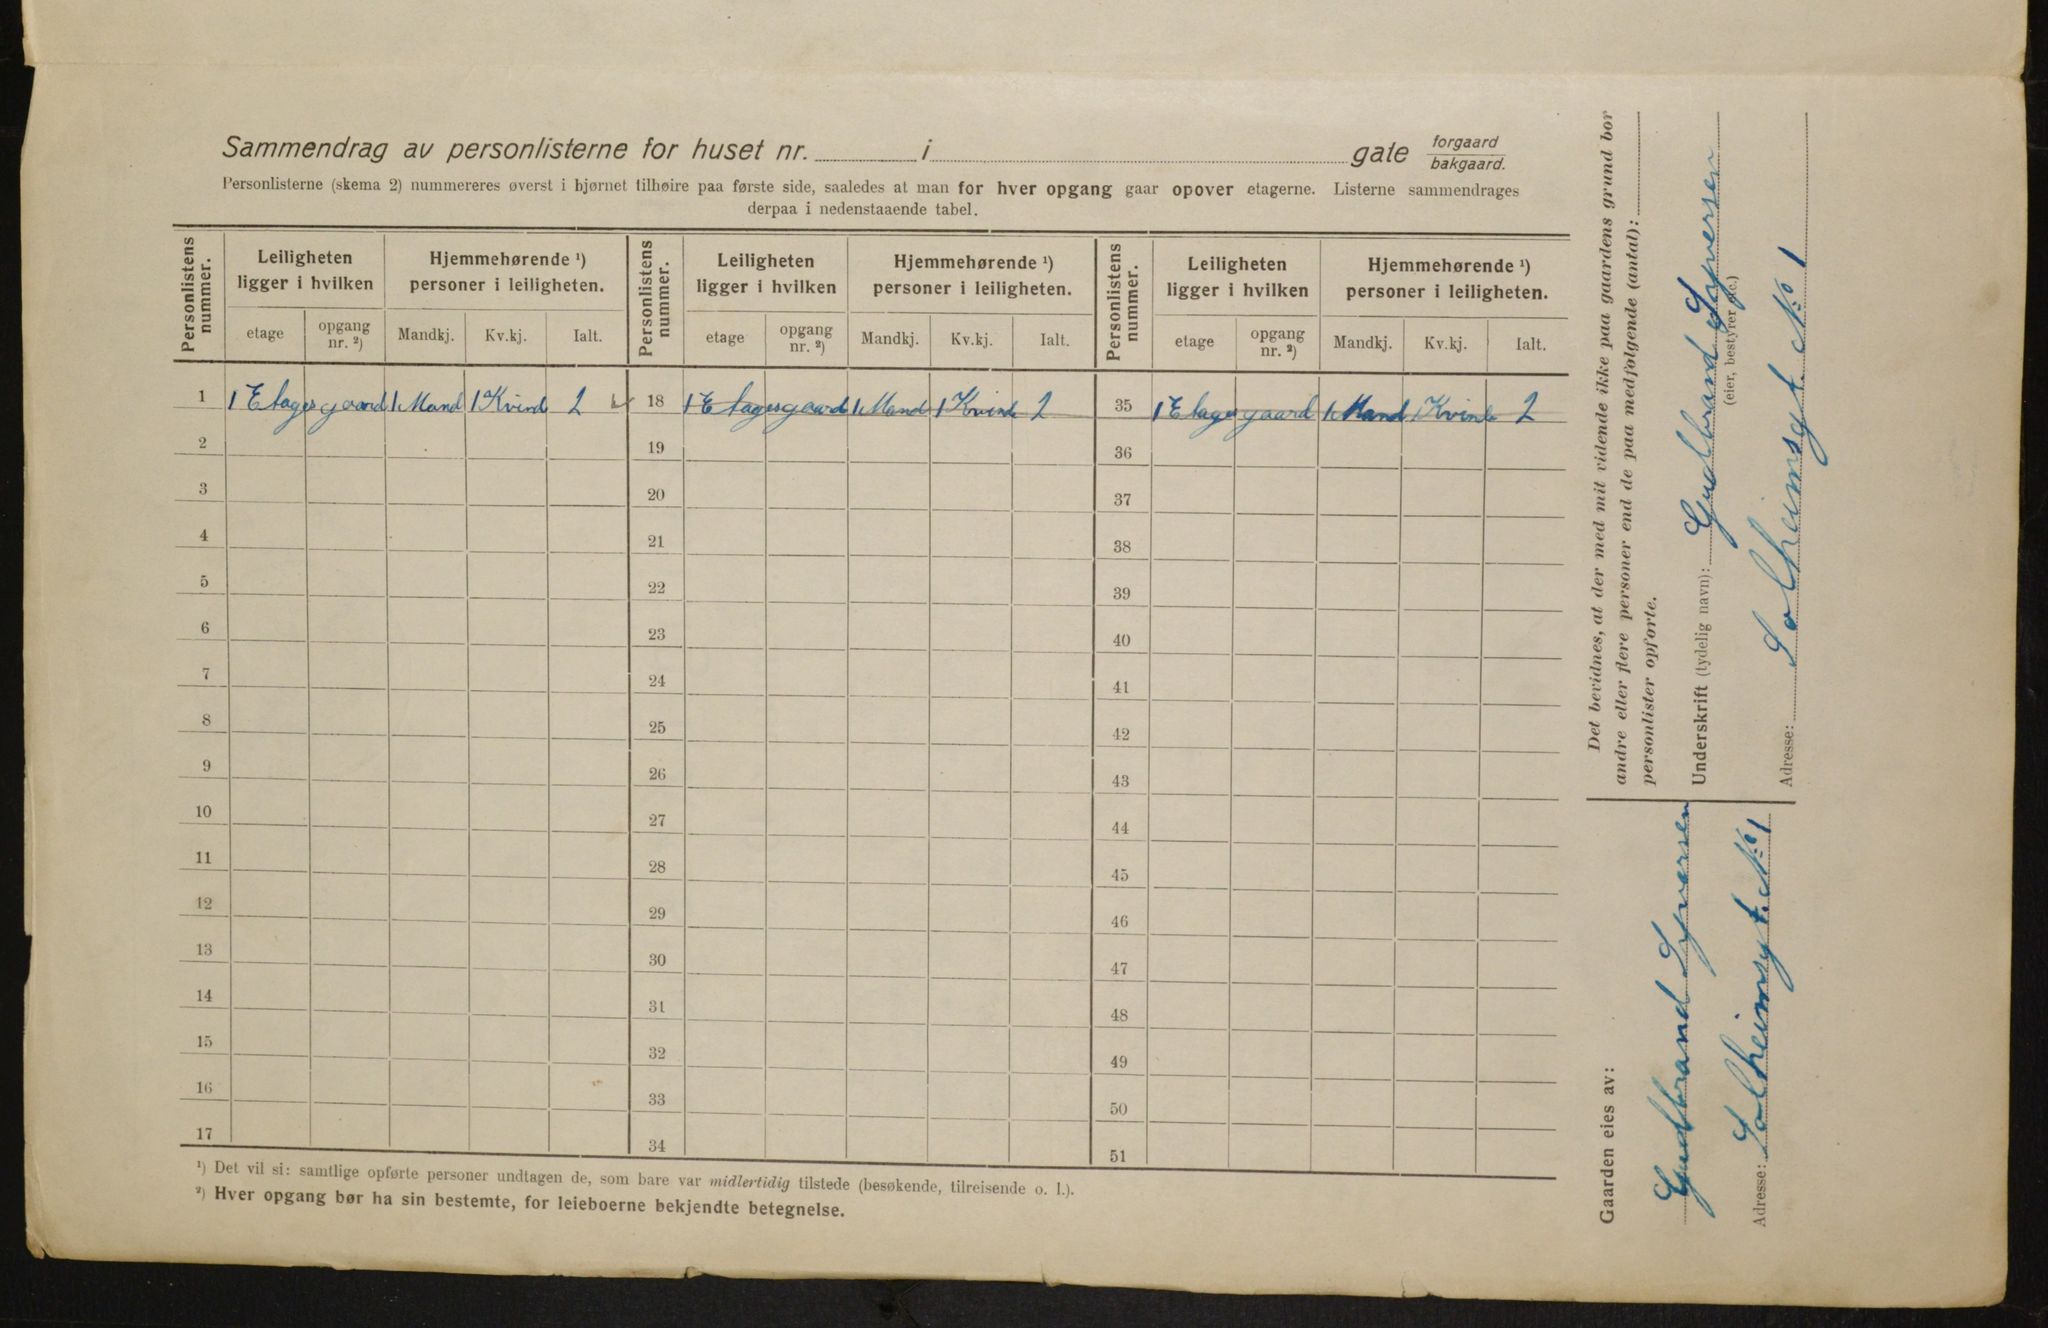 Sammendrag av personlisterne for huset nr. i gate forgaard
bakgaard.
Personlisterne (skema 2) nummereres øverst i hjørnet tilhøire paa første side, saaledes at man for hver opgang gaar opover etagerne. Listerne sammendrages
derpaa i nedenstaaende tabel.
Personlistens nummer. Leiligheten ligger i hvilken Hjemmehørende ¹) personer i leiligheten. Personlistens nummer. Leiligheten ligger i hvilken Hjemmehørende ¹) personer i leiligheten. Personlistens nummer. Leiligheten ligger i hvilken Hjemmehørende ¹) personer i leiligheten.
etage opgang nr. ²) Mandkj. Kv.kj. Ialt. etage opgang nr. ²) Mandkj. Kv.kj. Ialt. etage opgang nr. ²) Mandkj. Kv.kj. Ialt.
1 1 Etagesgaard 1 Mand 1 Kvind 2 18 1 Etagesgaard 1 Mand 1 Kvind 2 35 1 Etagesgaard 1 Mand Kvind 2
2 19 36
3 20 37
4 21 38
5 22 39
6 23 40
7 24 41
8 25 42
9 26 43
10 27 44
11 28 45
12 29 46
13 30 47
14 31 48
15 32 49
16 33 50
17 34 51
¹) Det vil si: samtlige opførte personer undtagen de, som bare var midlertidig tilstede (besøkende, tilreisende o. l.).
²) Hver opgang bør ha sin bestemte, for leieboerne bekjendte betegnelse.
Det bevidnes, at der med mit vidende ikke paa gaardens grund bor
andre eller flere personer end de paa medfølgende (antal):
personlister opførte.
Underskrift (tydelig navn): Gudbrand Syversen
(eier, bestyrer etc.)
Adresse: Solheimsgt. No 1
Gaarden eies av:
Gudbrand Syversen
Adresse: Solheimsgt. No 1